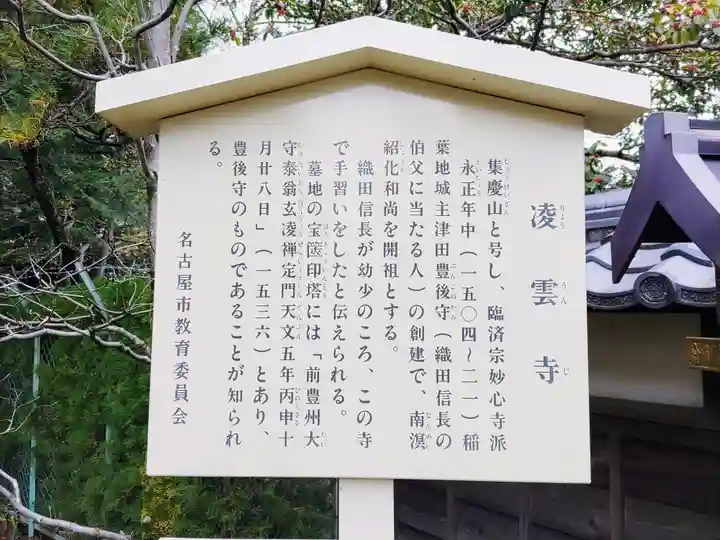 凌雲寺
りょううんじ
集慶山と号し、臨済宗妙心寺派
永正年中（一五〇四～二一）稲
葉地城主津田豊後守（織田信長の
伯父に当たる人）の創建で、南溟
紹化和尚を開祖とする。
織田信長が幼少のころ、この寺
で手習いをしたと伝えられる。
墓地の宝篋印塔には「前豊州大
守泰翁玄凌禅定門天文五年丙申十
月廿八日」（一五三六）とあり、
豊後守のものであることが知られ
る。
名古屋市教育委員会